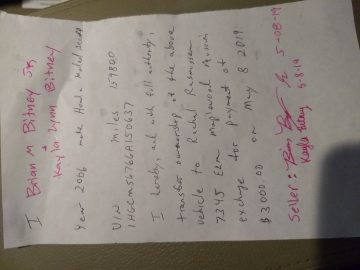 I Brian M Bitney SR
& Kayla Lynn Bitney
Year 2006 make Honda Model accord
VIN miles 159800
1HGCM56766A150637
I hereby, and with full authority,
transfer ownership of the above
vehicle to Rachel Rasmussen
7345 Elm Maplewood Mission
exchange for payment of
$3000.00 on May 8 2019
Seller: 5-08-19
Kayla Bitney 5-8-19